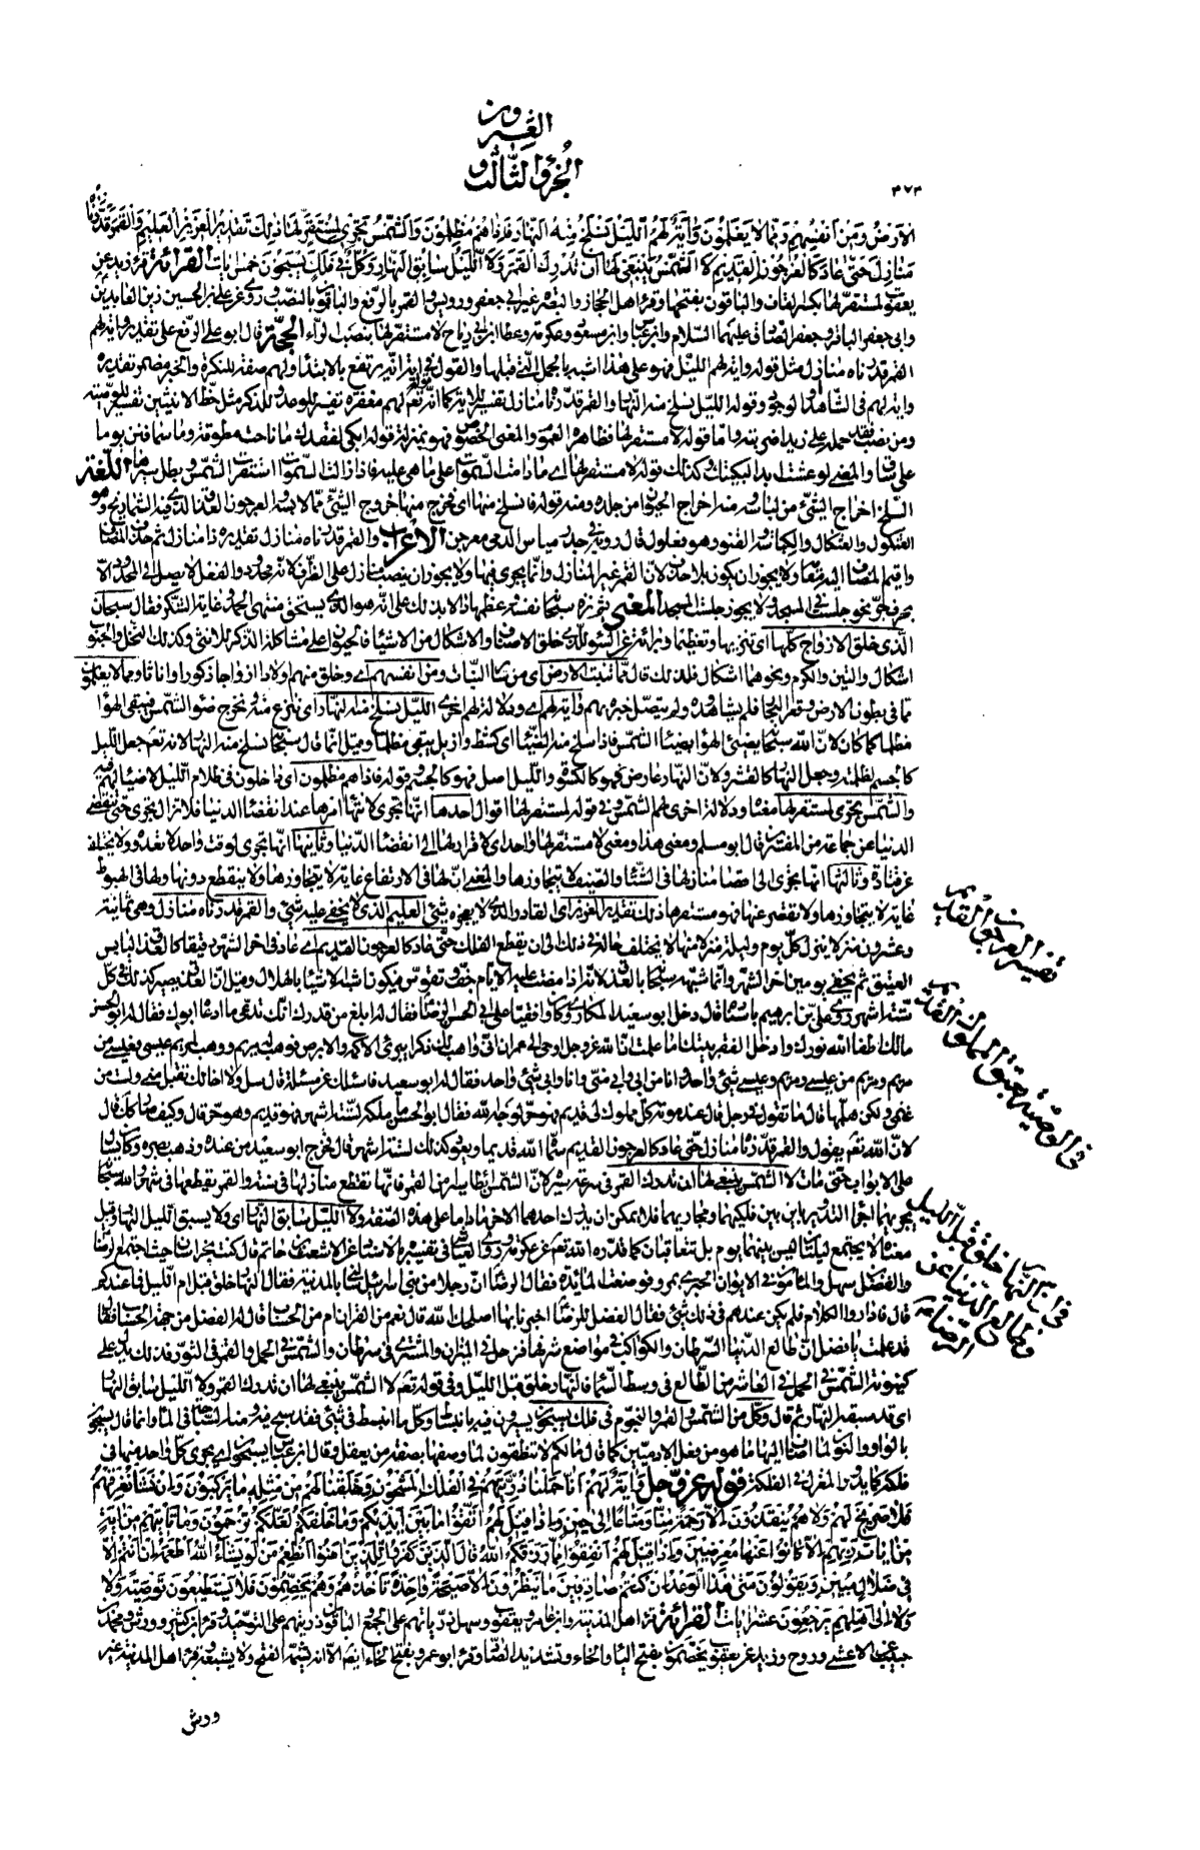 الجزؤ الثالث و العشرون
٣٧٣
الارض ومن انفسهم ومما لا يعلمون واية لهم الليل نسلخ منه النهار فاذا هم مظلمون والشمس تجرى لمستقر لها ذلك تقدير العزيز العليم والقمر قدرناه
منازل حتى عاد كالعرجون القديم لا الشمس ينبغى لها ان تدرك القمر ولا الليل سابق النهار وكل فى فلك يسبحون خمس ايات القرائة قرء زيد عن
يعقوب لمستقر لها بكسر القاف والباقون بفتحها وقرء اهل الحجاز والبصرة غير ابى جعفر ورويس والقمر بالرفع والباقون بالنصب وروى عن على بن الحسين زين العابدين
وابى جعفر الباقر وجعفر الصادق عليهما السلام وابن عباس وابن مسعود وعكرمة وعطا بن ابى رباح لا مستقر لها بنصب الراء الحجة قال ابو على الرفع على تقدير واية لهم
القمر قدرناه منازل مثل قوله واية لهم الليل فهو على هذا اشبه بالجمل التى قبلها والقول فى اية انه يرتفع بالابتداء ولهم صفة للنكرة والخبر مضمر تقديره
واية لهم فى الشاهد او الوجود وقوله الليل نسلخ منه النهار والقمر قدرناه منازل تفسير للاية كما ان قوله لهم مغفرة تفسير للوعد وللذكر مثل حظ الانثيين تفسير للوصية
ومن نصب فقد حمله على زيدا ضربته واما قوله لا مستقر لها فظاهره العموم والمعنى الخصوص فهو بمنزلة قوله ابكى لفقدك ما ناحت مطوقة وما سما فنن يوما
على ساق والمعنى لو عشت ابدا لبكيتك وكذلك قوله لا مستقر لها اى ما دامت السموات على ما هى عليه فاذا زالت السموات استقرت الشمس وبطل سيرها اللغة
السلخ اخراج الشىء من لباسه ومنه اخراج الحيوان من جلده ومنه قوله فانسلخ منها اى فخرج منها خروج الشىء مما لابسه والعرجون العذق الذى فيه الشماريخ وهو
العثكول والعثكال والكباسة والقنو وهو فعلول قال رؤبة فى خدر مياس الدمى معرجن الاعراب والقمر قدرناه منازل تقديره ذا منازل ثم حذف المضاف
واقيم المضاف اليه مقامه ولا يجوز ان يكون بلا حذف لان القمر غير المنازل وانما يجرى فيها ولا يجوز ان ينصب منازل على الظرف لانه محدود والفعل لا يصل الى المحدود الا
بحرف جر نحو جلست فى المسجد ولا يجوز جلست المسجد المعنى ثم نزه سبحانه نفسه وعظمها دالا بذلك على انه هو الذى يستحق منتهى الحمد وغاية الشكر فقال سبحان
الذى خلق الازواج كلها اى تنزيها وتعظيما وبراءة عن السوء للذى خلق الاصناف والاشكال من الاشياء فالحيوان على مشاكلة الذكر للانثى وكذلك النخل والحبوب
اشكال والتين والكرم ونحوهما اشكال فلذلك قال مما تنبت الارض اى من سائر النبات ومن انفسهم اى وخلق منهم اولادا ازواجا ذكورا واناثا ومما لا يعلمون
مما فى بطون الارض وقعر البحار فلم يشاهدوه ولم يتصل خبره بهم واية لهم اى ودلالة لهم اخرى الليل نسلخ منه النهار اى ننزع منه ونخرج ضوء الشمس فيبقى الهواء
مظلما كما كان لان الله سبحانه يضىء الهواء بضياء الشمس فاذا سلخ منه الضياء اى كشط وازيل يبقى مظلما وقيل انما قال سبحانه نسلخ منه النهار لانه تعالى جعل الليل
كالجسم لظلمته وجعل النهار كالقشر ولان النهار عارض فهو كالكسوة والليل اصل فهو كالجسم وقوله فاذا هم مظلمون اى داخلون فى ظلام الليل لا ضياء لهم فيه
والشمس تجرى لمستقر لها معناه ودلالة اخرى لهم الشمس فى قوله لمستقر لها اقوال احدها انها تجرى لانتهاء امرها عند انقضاء الدنيا فلا تزال تجرى حتى تنقضى
الدنيا عن جماعة من المفسرين قال ابو مسلم ومعنى هذا ومعنى لا مستقر لها واحد اى لا قرار لها الى انقضاء الدنيا وثانيها انها تجرى لوقت واحد لا تعدوه ولا يختلف
عن قتادة وثالثها انها تجرى الى اقصى منازلها فى الشتاء والصيف لا تتجاوزها والمعنى ان لها فى الارتفاع غاية لا يتجاوزها ولا ينقطع دونها ولها فى الهبوط
غاية لا يتجاوزها ولا تقصر عنها فهو مستقرها ذلك تقدير العزيز اى القادر الذى لا يعجزه شىء العليم الذى لا يخفى عليه شىء والقمر قدرناه منازل وهى ثمانية
وعشرون منزلا ينزل كل يوم وليلة منزلة منها لا يختلف حاله فى ذلك الى ان يقطع الفلك حتى عاد كالعرجون القديم اى عاد فى اخر الشهر دقيقا كالعذق اليابس
العتيق ثم يخفى يومين اخر الشهر وانما شبهه سبحانه بالعذق لانه اذا مضت عليه الايام جف وتقوس فيكون اشبه الاشياء بالهلال وقيل ان العذق يصير كذلك فى كل
ستة اشهر روى على بن ابراهيم باسناده قال دخل ابو سعيد المكارى وكان واقفيا على ابى الحسن الرضا فقال له ابلغ من قدرك انك تدعى ما ادعاه ابوك فقال له ابو الحسن
مالك اطفأ الله نورك وادخل الفقر بيتك اما علمت ان الله عز وجل اوحى الى عمران انى واهب لك ذكرا يبرئ الاكمه والابرص فوهب له مريم ووهب لمريم عيسى فعيسى من
مريم ومريم من عيسى ومريم وعيسى شىء واحد وانا من ابى وابى منى وانا وابى شىء واحد فقال له ابو سعيد فاسئلك عن مسئلة قال سل ولا اخالك تقبل منى ولست من
غنمى ولكن هلمها قال ما تقول فى رجل قال عند موته كل مملوك لى قديم فهو حر لوجه الله فقال ابو الحسن ما ملكه لستة اشهر فهو قديم وهو حر قال وكيف صار كذلك قال
لان الله تعالى يقول والقمر قدرناه منازل حتى عاد كالعرجون القديم سماه الله قديما ويعود كذلك لستة اشهر قال فخرج ابو سعيد من عنده وذهب بصره وكان يسئل
على الابواب حتى مات لا الشمس ينبغى لها ان تدرك القمر فى سرعة سيره لان الشمس ابطأ سيرا من القمر فانها تقطع منازلها فى سنة والقمر يقطعها فى شهر والله سبحانه
يجريهما اجراء التدوير باين بين فلكيهما ومجاريهما فلا يمكن ان يدرك احدهما الاخر ما داما على هذه الصفة ولا الليل سابق النهار اى ولا يسبق الليل النهار وقيل
معناه لا يجتمع ليلتان ليس بينهما يوم بل تتعاقبان كما قدره الله تعالى عن عكرمة وروى العياشى فى تفسيره بالاسناد عن الاشعث بن حاتم قال كنت بخراسان حيث اجتمع الرضا
والفضل بن سهل والمأمون فى الايوان الحبرى بمرو فوضعت المائدة فقال الرضا ان رجلا من بنى اسرائيل سئلنى بالمدينة فقال النهار خلق قبل ام الليل فما عندكم
قال فاداروا الكلام فلم يكن عندهم فى ذلك شىء فقال الفضل للرضا اخبرنا بها اصلحك الله قال نعم من القران ام من الحساب قال له الفضل من جهة الحساب فقال
قد علمت يا فضل ان طالع الدنيا السرطان والكواكب فى مواضع شرفها فزحل فى الميزان والمشترى فى سرطان والشمس فى الحمل والقمر فى الثور فذلك يدل على
كينونة الشمس فى الحمل فى العاشر من الطالع فى وسط السماء فالنهار خلق قبل الليل وفى قوله تعالى لا الشمس ينبغى لها ان تدرك القمر ولا الليل سابق النهار
اى قد سبقه النهار ثم قال وكل من الشمس والقمر والنجوم فى فلك يسبحون يسيرون فيه بانبساط وكل ما انبسط فى شىء فقد سبح فيه ومنه السباحة فى الماء وانما قال يسبحون
بالواو والنون لما اضاف اليها ما هو من فعل الادميين كما قال مالكم لا تنطقون لما وصفها بصفة من يعقل وقال ابن عباس يسبحون اى يجرى كل واحد منها فى
فلكه كما يدور المغزل فى الفلكة قوله عز وجل واية لهم انا حملنا ذريتهم فى الفلك المشحون وخلقنا لهم من مثله ما يركبون وان نشأ نغرقهم
فلا صريخ لهم ولا هم ينقذون الا رحمة منا ومتاعا الى حين واذا قيل لهم اتقوا ما بين ايديكم وما خلفكم لعلكم ترحمون وما تأتيهم من اية
من ايات ربهم الا كانوا عنها معرضين واذا قيل لهم انفقوا مما رزقكم الله قال الذين كفروا للذين امنوا انطعم من لو يشاء الله اطعمه ان انتم الا
فى ضلال مبين ويقولون متى هذا الوعد ان كنتم صادقين ما ينظرون الا صيحة واحدة تأخذهم وهم يخصمون فلا يستطيعون توصية ولا
ولا الى اهلهم يرجعون عشر ايات القرائة قرء اهل المدينة وابن عامر ويعقوب وسهل ذرياتهم على الجمع والباقون ذريتهم على التوحيد وقرء ابن كثير وورش ومحمد بن
حبيب عن الاعشى وروح وزيد عن يعقوب يخصمون بفتح الياء والخاء وتشديد الصاد وقرء ابو عمرو بفتح الخاء ايضا الا انه يشم الفتح ولا يشبعه وقرء اهل المدينة غير
ورش
تفسير العرجون القديم
فى الوصية بعتق المماليك القديم
فى ان النهار خلق قبل الليل
وطالع الدنيا عن
الرضا عليه